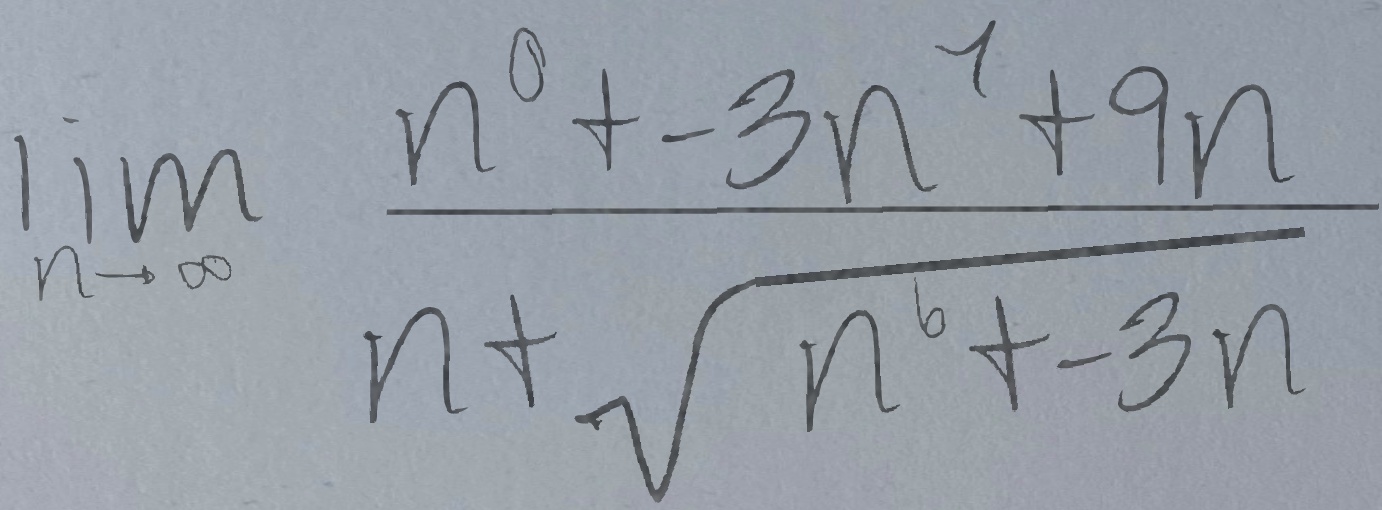 \lim_{n \to \infty} \frac{n^0 + -3n^1 + 9n}{n + \sqrt{n^6 + -3n}}